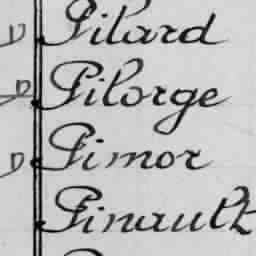 D Pilard
D Pilorge
D Pimor
Pinault